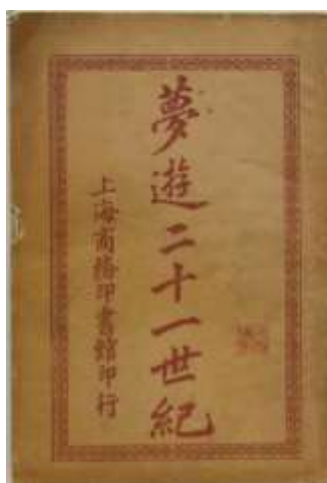 夢遊二十一世紀
上海商務印書館印行